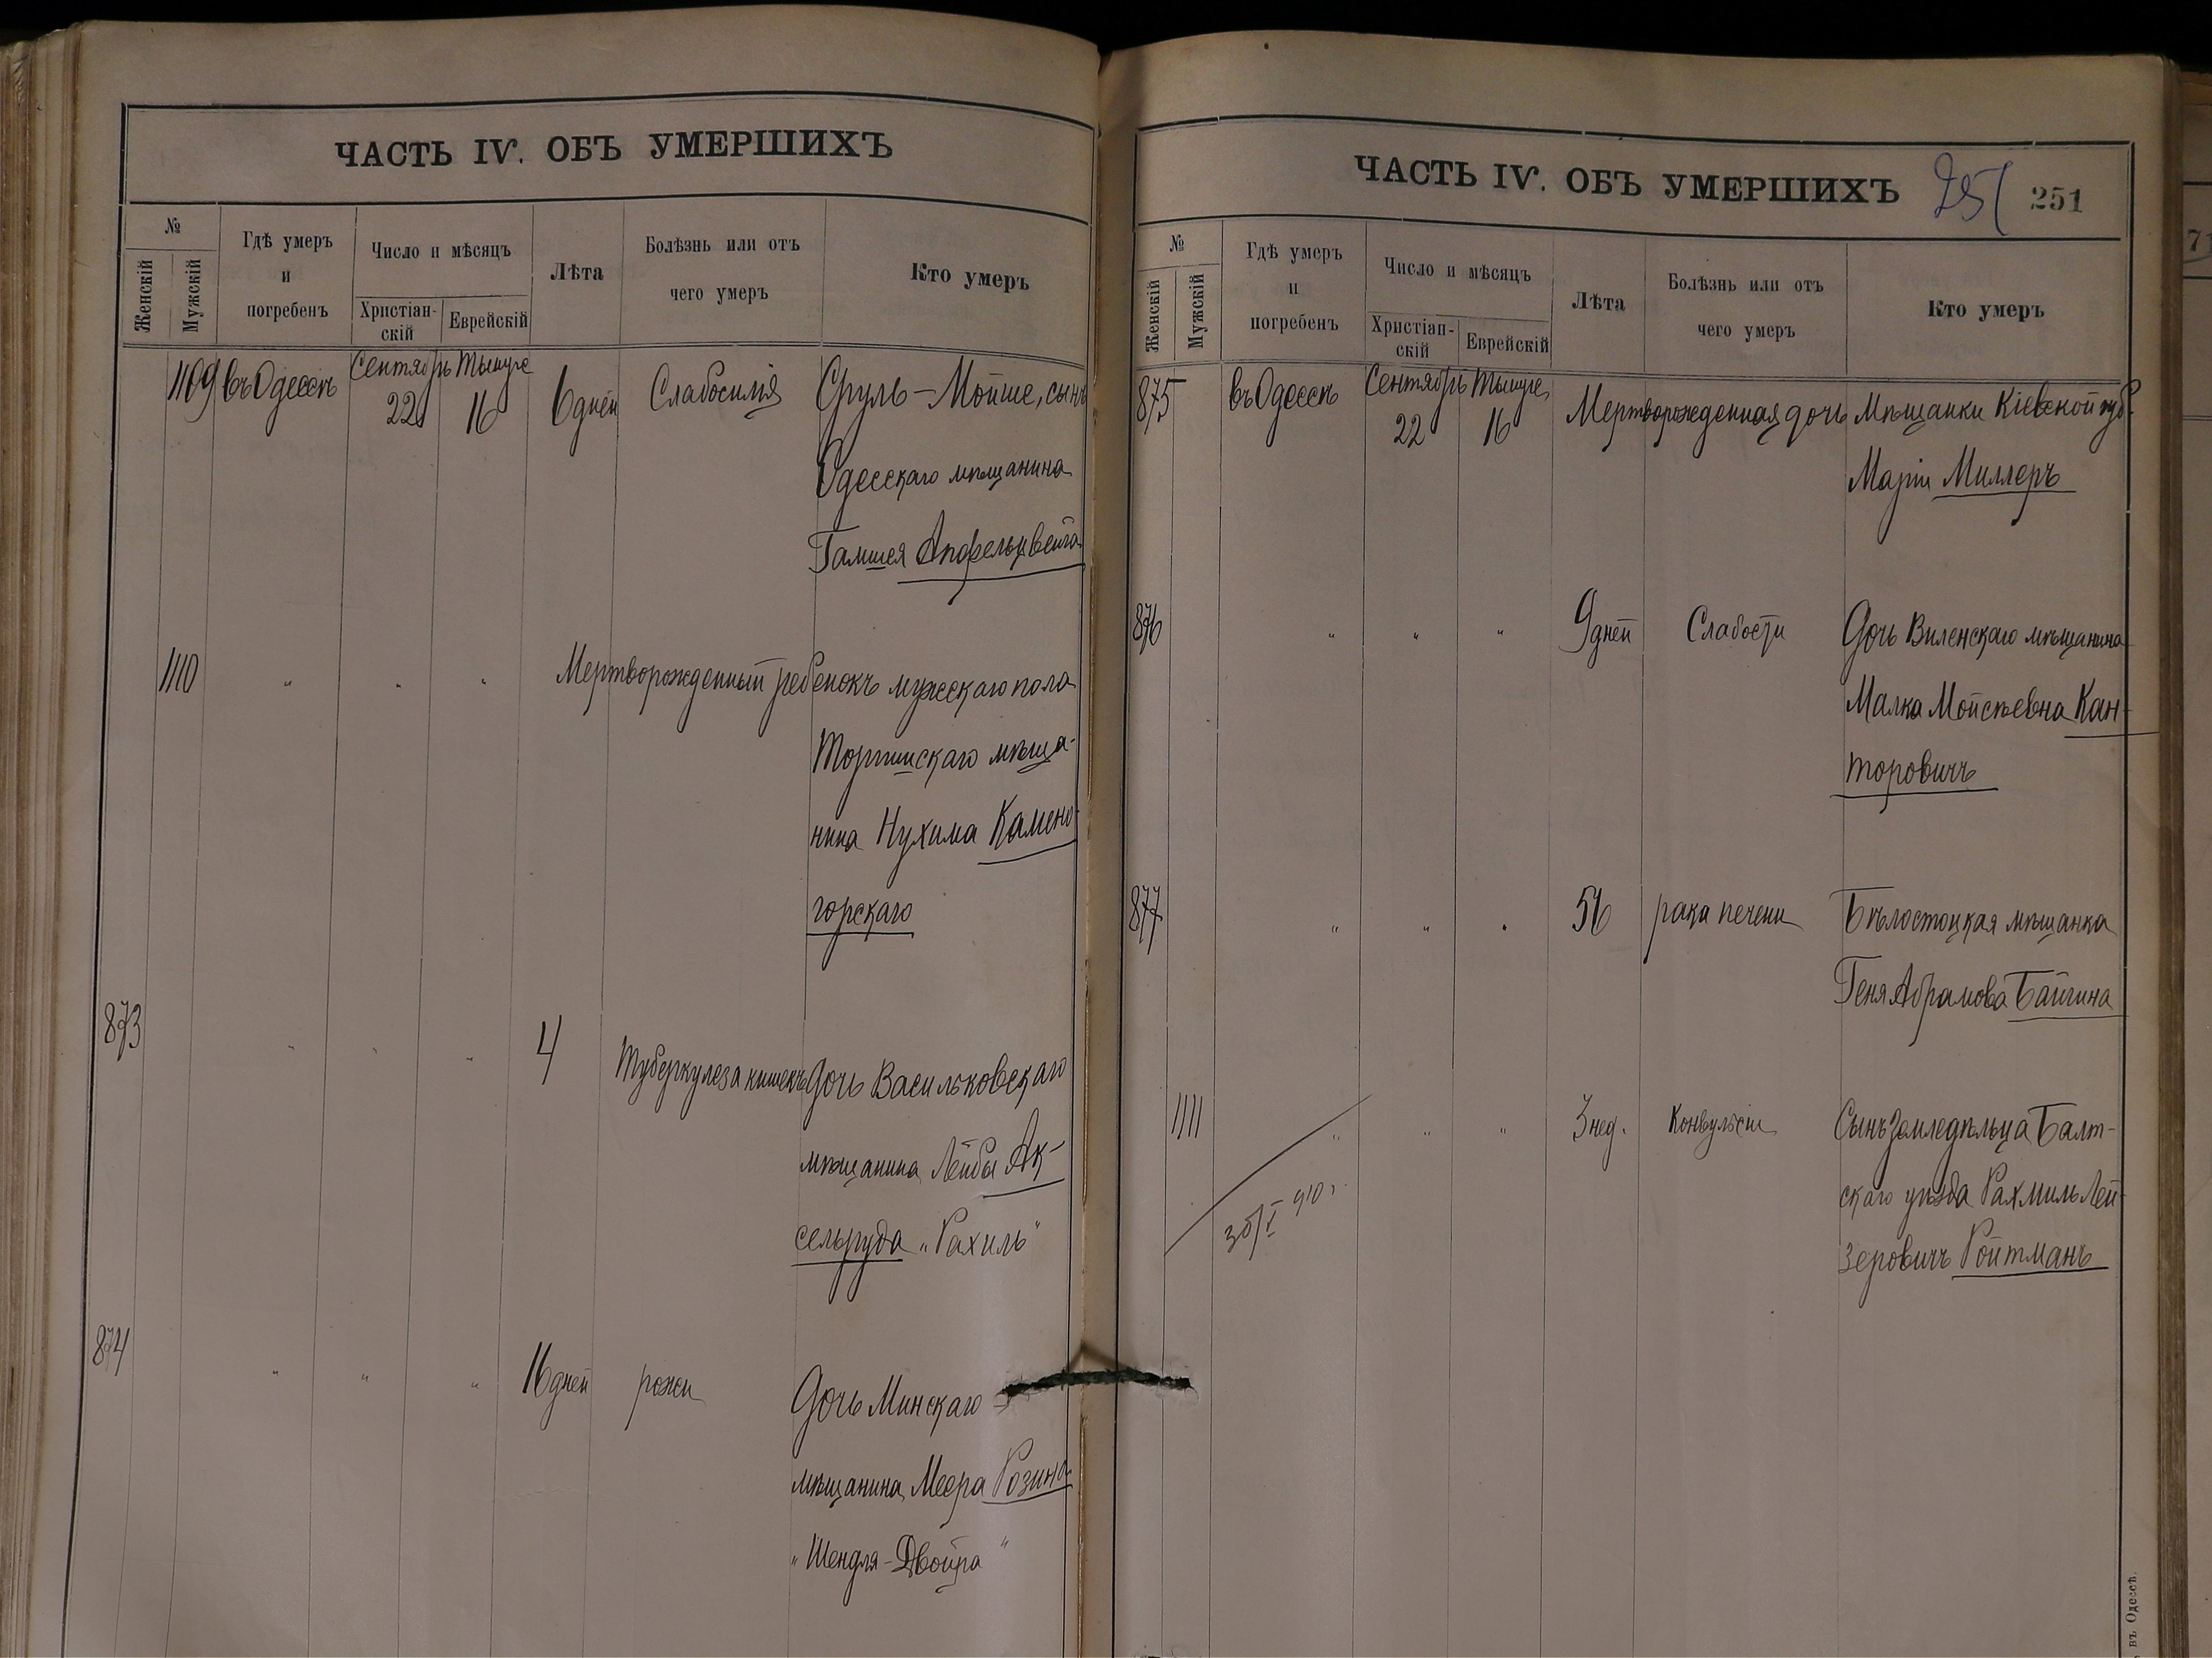 ЧАСТЬ IV. ОБЪ УМЕРШИХЪ
№
Женскій
Мужскій
Гдѣ умеръ
и
погребенъ
Число и мѣсяцъ
Христіан-
скій
Еврейскій
Лѣта
Болѣзнь или отъ
чего умеръ
Кто умеръ
1109 въ Одессѣ Сентябрь 22 Тышре 16 6 дней Слабосилія Сруль-Мойше, сынъ
Одесскаго мѣщанина
Гамшея Апфельцвейга
1110 " " " Мертворожденный ребенокъ мужскаго пола
мѣща-
нина Нухима Камено-
горскаго
873 " " " 4 Туберкулеза кишекъ Дочь Васильковскаго
мѣщанина Лейбы Ак-
сельруда „Рахиль"
874 " " " 16 дней рожи Дочь Минскаго
мѣщанина Меера
„Шендля-Двойра"
ЧАСТЬ IV. ОБЪ УМЕРШИХЪ 251 251
№
Женскій
Мужскій
Гдѣ умеръ
и
погребенъ
Число и мѣсяцъ
Христіан-
скій
Еврейскій
Лѣта
Болѣзнь или отъ
чего умеръ
Кто умеръ
875 въ Одессѣ Сентябрь 22 Тышре 16 Мертворожденная дочь Мѣщанки Кіевской губ.
Маріи Миллеръ
876 " " " 9 дней Слабости Дочь Виленскаго мѣщанина
Малка Мойсѣевна Кан-
торовичъ
877 " " " 56 рака печени Бѣлостоцкая мѣщанка
Геня Абрамова Байгина
1111 " " " 3 нед. Конвульсіи Сынъ земледѣльца Балт-
скаго уѣзда Рахмиль Лей-
зеровичъ Ройтманъ
910 г.
въ Одессѣ.
71